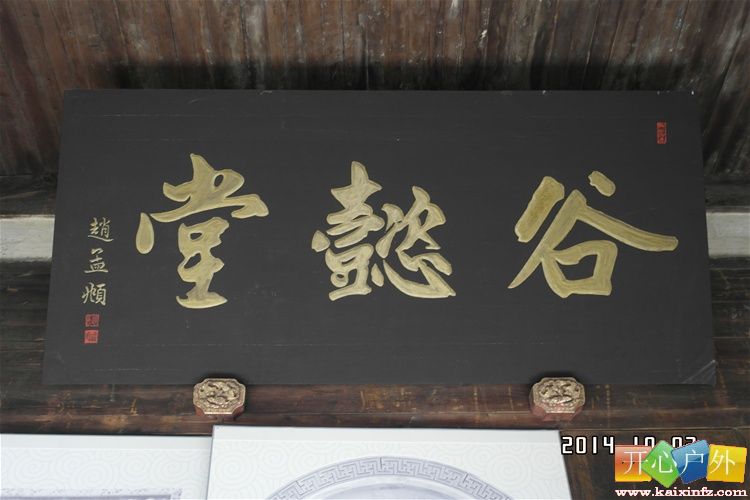 谷懿堂
趙孟頫
2014 10 02
开心户外
www.kaixinfz.com